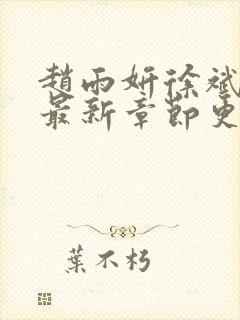 趙雨妍徐斌
最新章節更
葉不朽